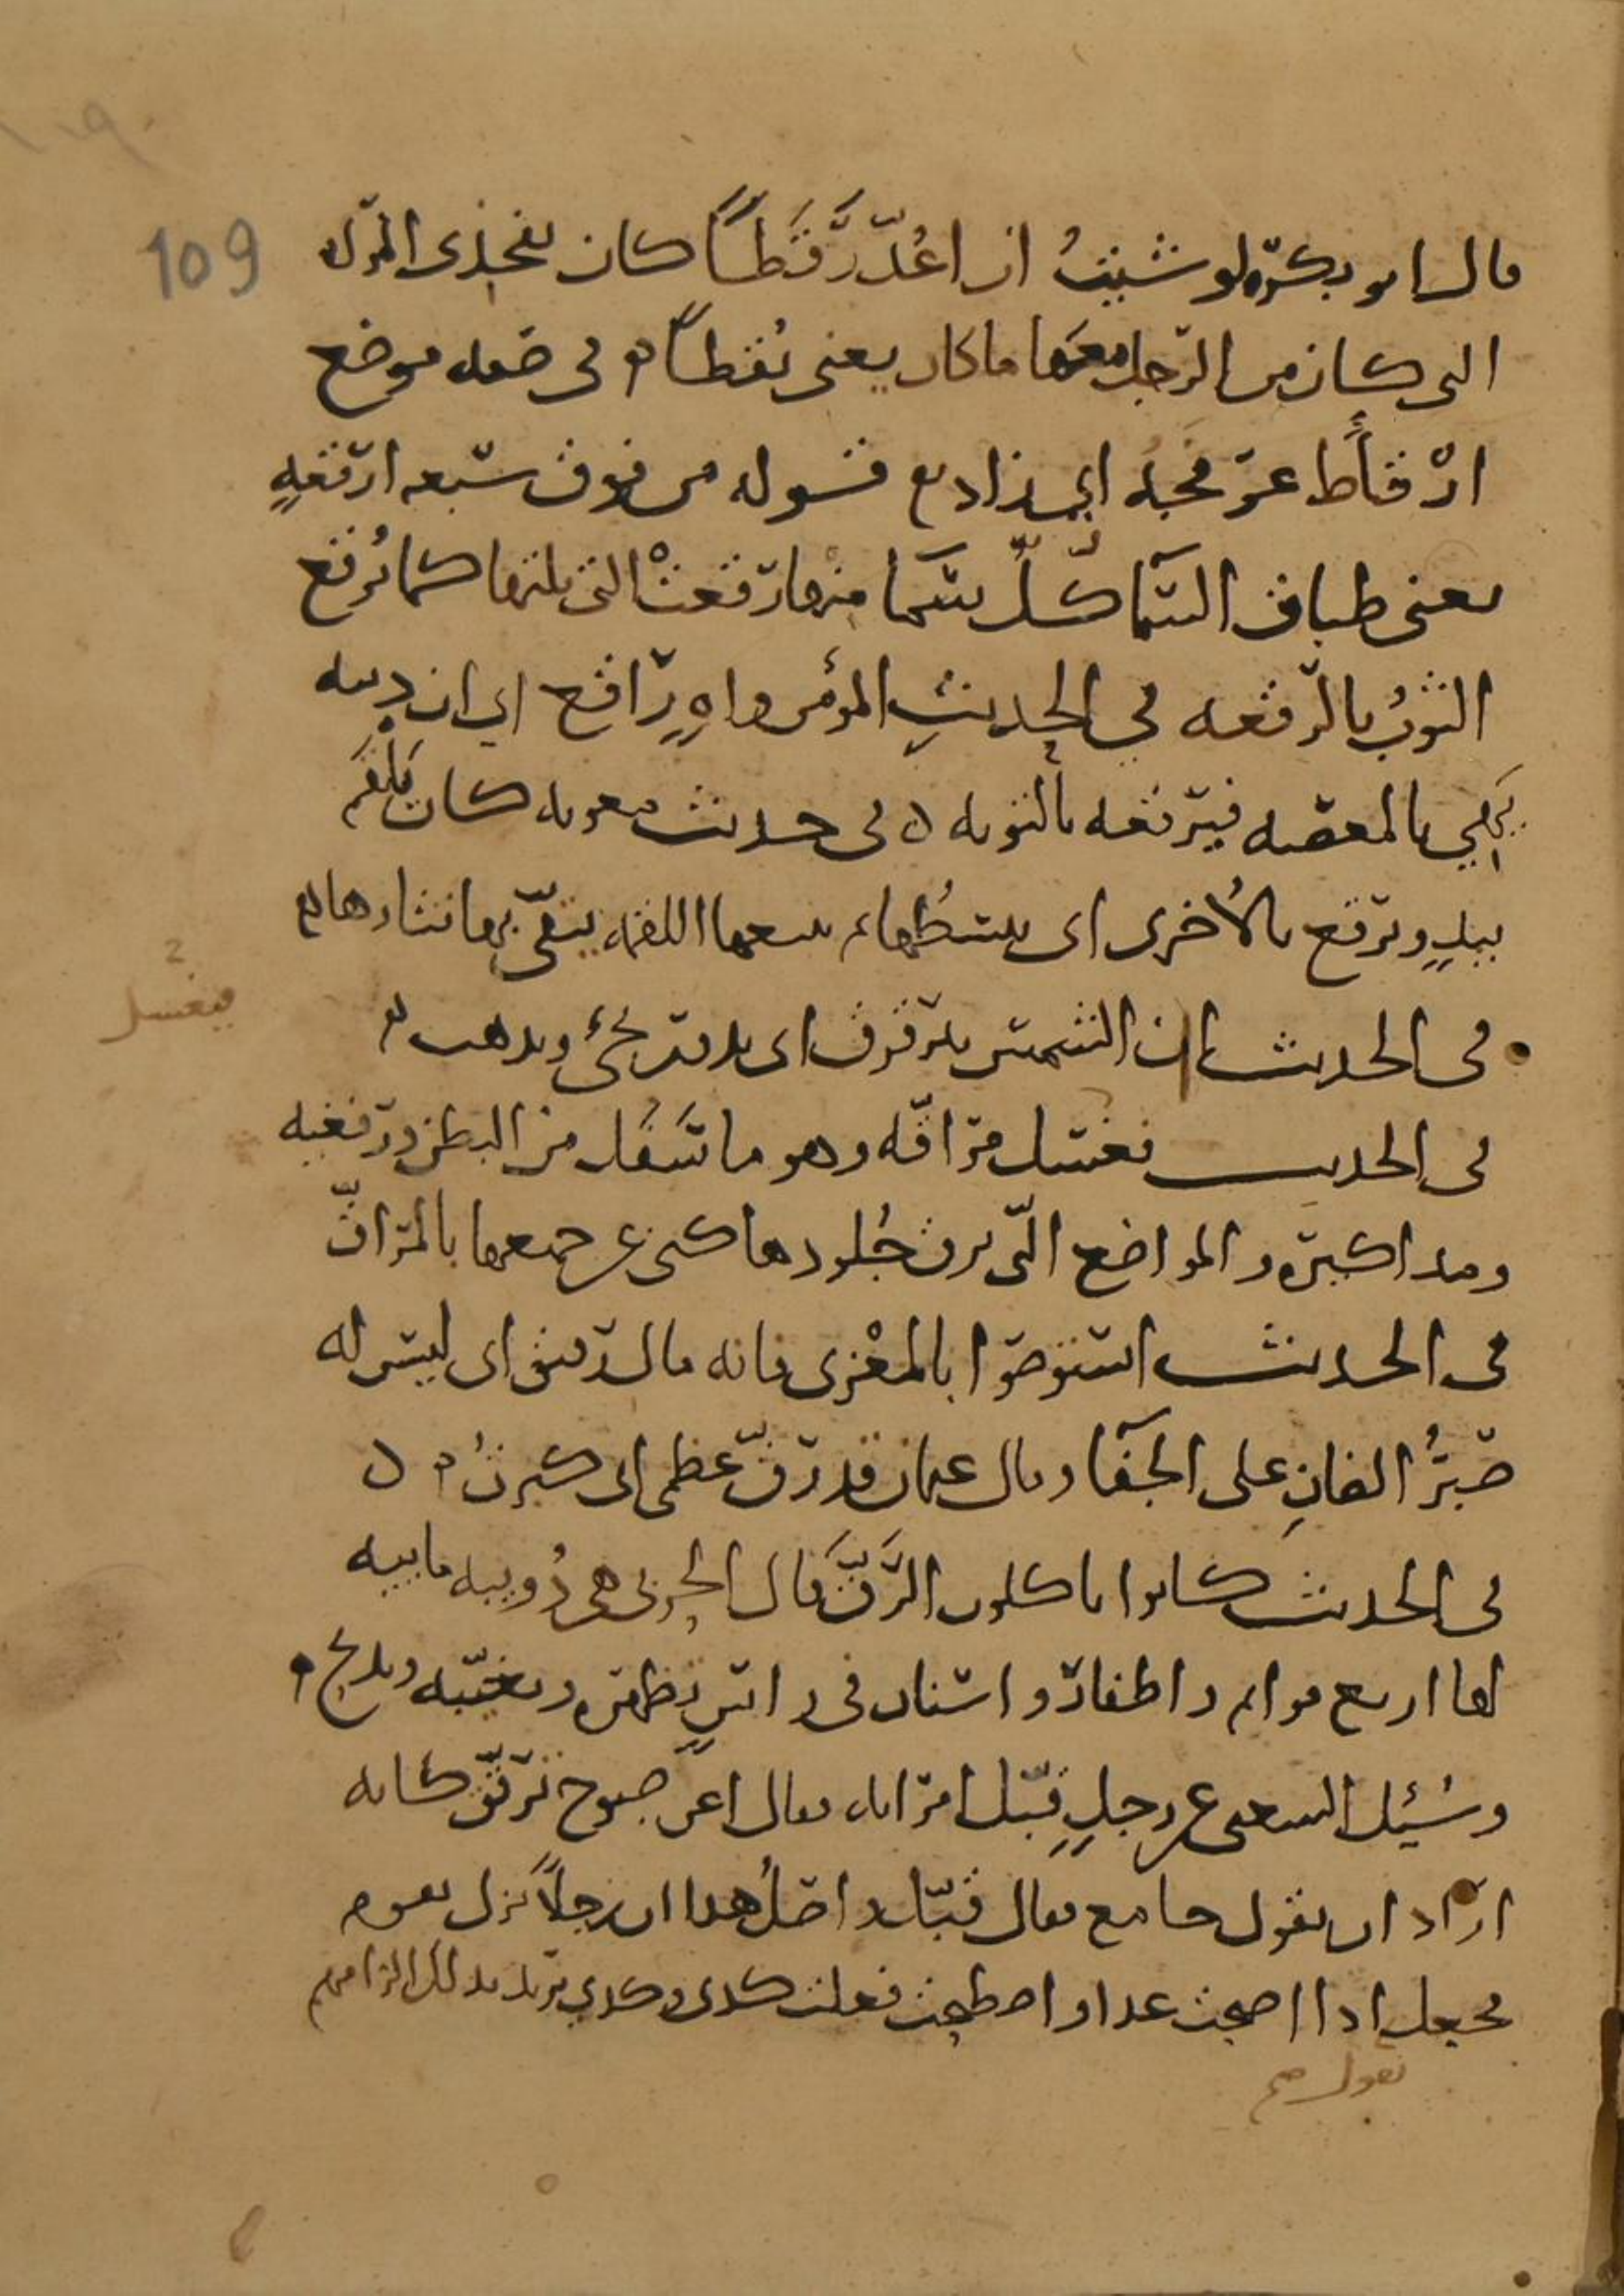 109
قال ابو بكرة لو شئت ان اعد رقطا كان بفخذى المراة
التى كان من الرجل معها ما كان يعنى نقطا في صفه موضع
ارقاط عرفجه اي زاد مع قوله من فوق سبعه ارقعة
يعنى طباق السما كل سما منها رقعت التى تليها كما يرقع
الثوب بالرقعه في الحديث المؤمن واه راقع اي ان دينه
يهي بالمعصيه فيرقعه بالتوبه في حديث معويه كان يلقم
بيد ويرقع بالاخرى اى يبسطها يتبعها اللقمه ينقى بها نثارها
في الحديث ان الشمس ترقرق اى تدور تجئ وتذهب
فيغسل
في الحديث فغسل مراقه وهو ما سفل من البطن ورفغيه
ومذاكيره والمواضع التى ترق جلودها كنى عن جميعها بالمراق
في الحديث استوصوا بالمعزى فانه مال رقيق اى ليس له
صبر الضان على الجفا وقال عثمان قد رق عظمى اى كبرت
في الحديث كانوا ياكلون الرق قال الحربى هى دويبه مائيه
لها اربع قوائم واظفار واسنان فى راس تظهره وتغيبه وتذبح
وسئل الشعبى عن رجل قبل ام امراته فقال اعن صبوح ترقق كانه
اراد ان يقول جامع فقال قبل واصل هذا ان رجلا نزل بقوم
فجعل اذا اصبحت غدا واصطبحت فعلت كذى وكذي يريد بذلك الزامهم
يقول صح